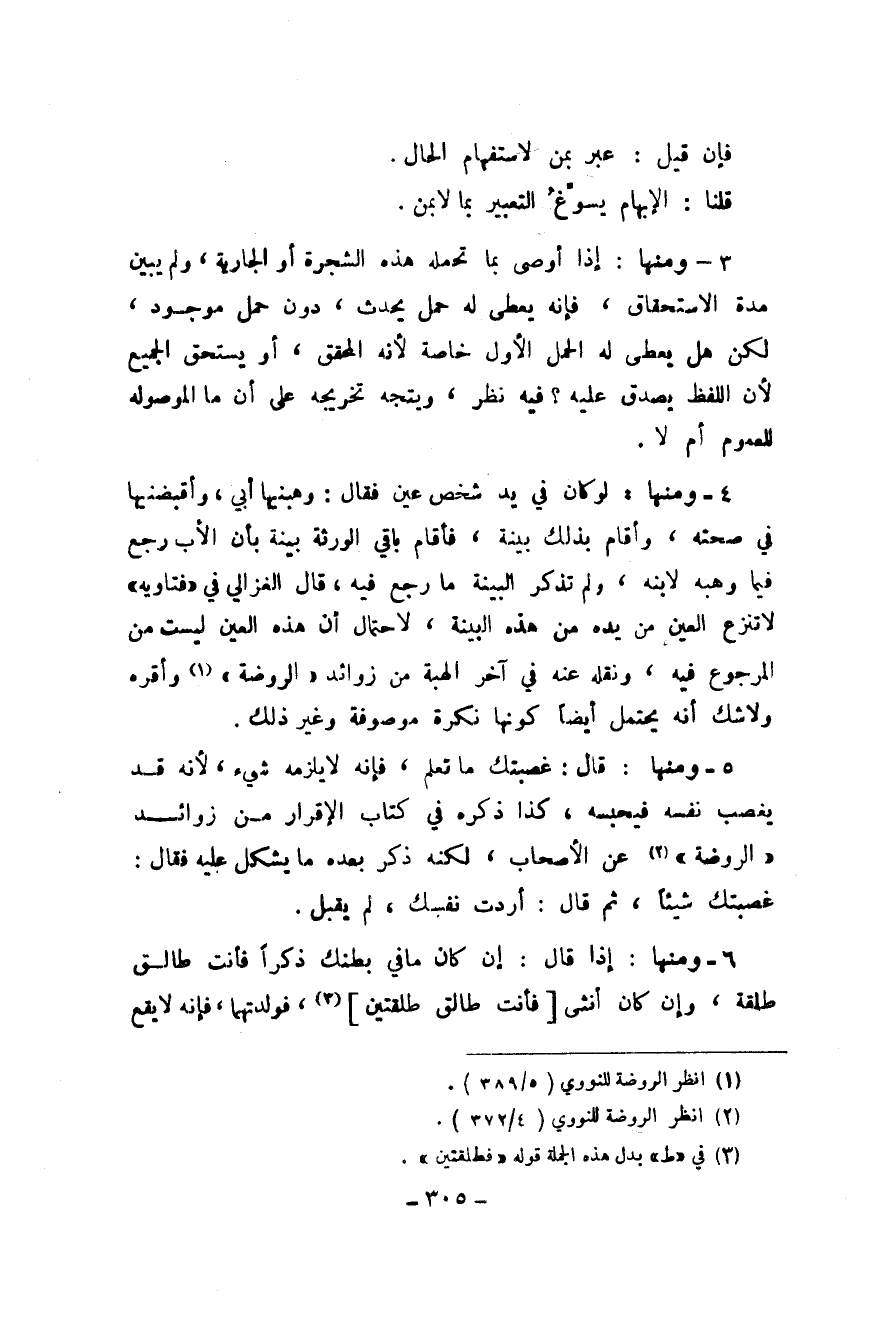 فإن قيل : عبر بمن لاستفهام الحال .
قلنا : الإبهام يسوّغُ التعبير بما لابمن .
٣ – ومنها : إذا أوصى بما تحمله هذه الشجرة أو الجارية ، ولم يبين
مدة الاستحقاق ، فإنه يعطى له حمل يحدث ، دون حمل موجود ،
لكن هل يعطى له الحمل الأول خاصة لأنه المحقق ، أو يستحق الجميع
لأن اللفظ يصدق عليه ؟ فيه نظر ، ويتجه تخريجه على أن ما الموصوله
للعموم أم لا .
٤ - ومنها : لوكان في يد شخص عين فقال : وهبنيها أبي ، وأقبضنيها
في صحته ، وأقام بذلك بينة ، فأقام باقي الورثة بينة بأن الأب رجع
فيما وهبه لابنه ، ولم تذكر البينة ما رجع فيه ، قال الغزالي في «فتاويه»
لاتنزع العين من يده من هذه البينة ، لاحتمال أن هذه العين ليست من
المرجوع فيه ، ونقله عنه في آخر الهبة من زوائد « الروضة » (١) وأقره
ولاشك أنه يحتمل أيضاً كونها نكرة موصوفة وغير ذلك .
٥ - ومنها : قال : غصبتك ما تعلم ، فإنه لايلزمه شيء ، لأنه قد
يغصب نفسه فيحبسه ، كذا ذكره في كتاب الإقرار من زوائد
« الروضة » (٢) عن الأصحاب ، لكنه ذكر بعده ما يشكل عليه فقال :
غصبتك شيئاً ، ثم قال : أردت نفسك ، لم يقبل .
٦ - ومنها : إذا قال : إن كان مافي بطنك ذكراً فأنت طالق
طلقة ، وإن كان أنثى [ فأنت طالق طلقتين ] (٣) ، فولدتهما ، فإنه لايقع
(١) انظر الروضة للنووي ( ٣٨٩/٥ ) .
(٢) انظر الروضة للنووي ( ٣٧٢/٤ ) .
(٣) في «ط» بدل هذه الجملة قوله « فطلقتين » .
- ٣٠٥ -